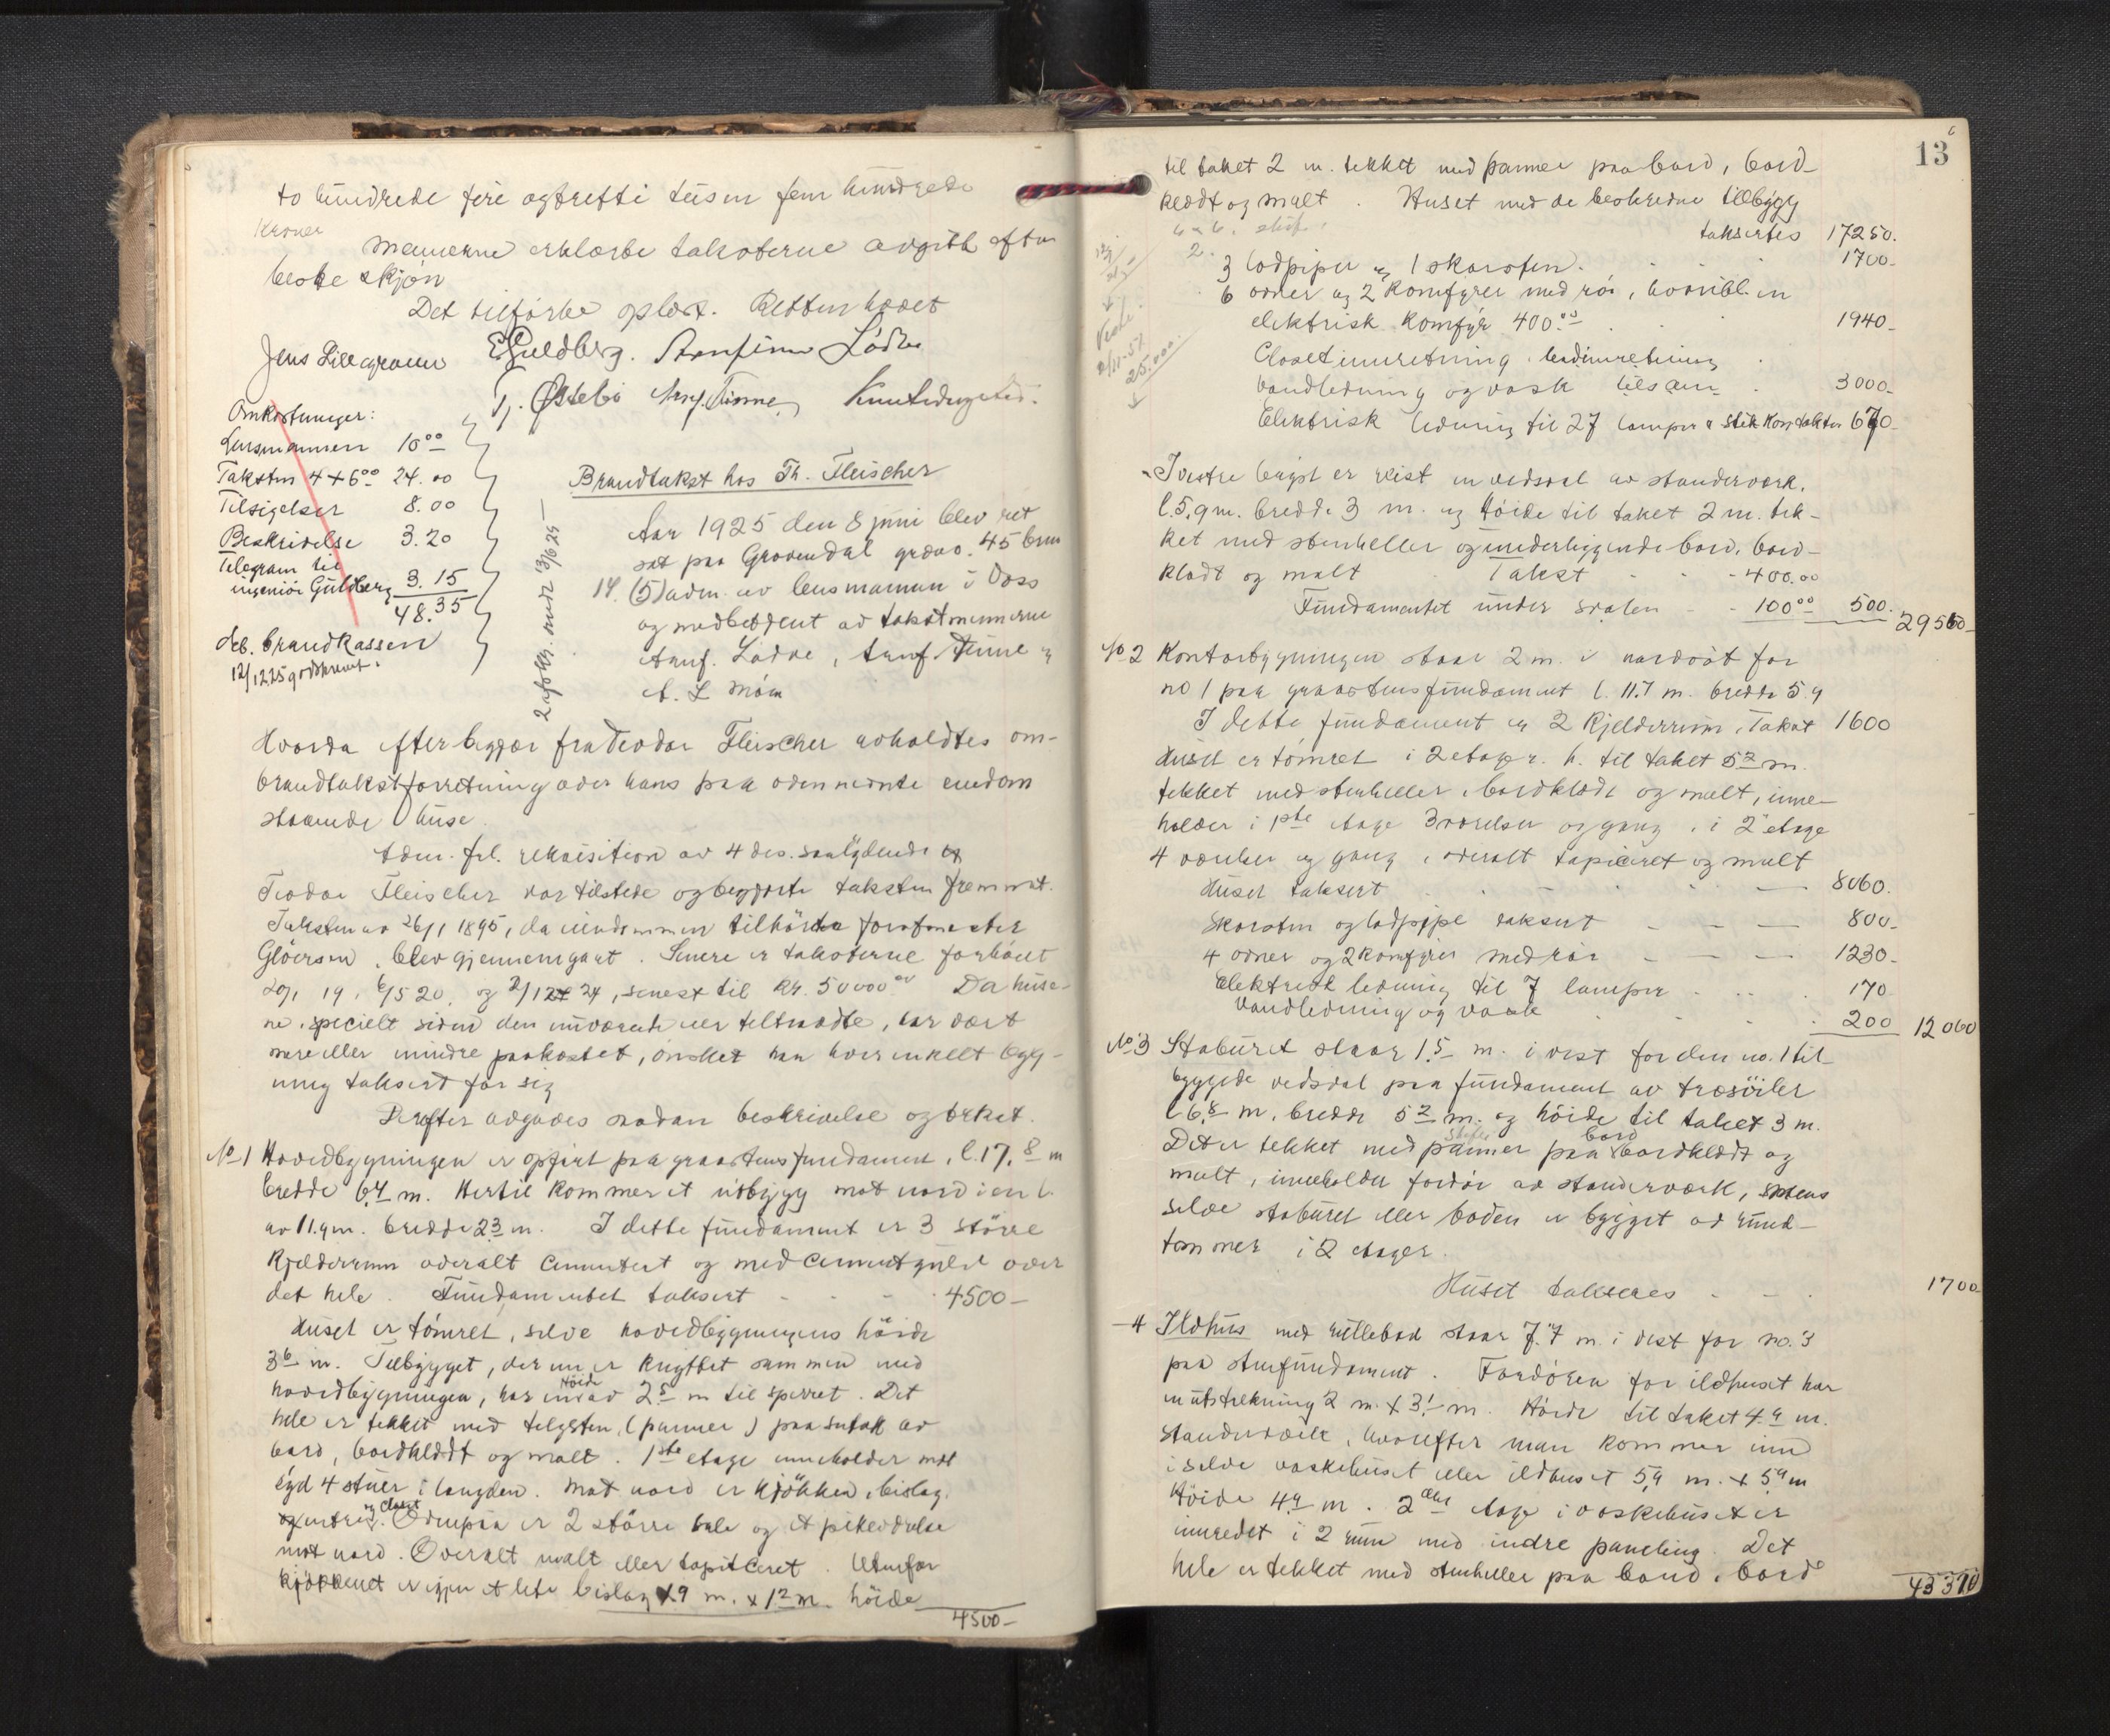 to hundrede fire og tretti tusen fem hundrede
kroner
Mennerne erklærte taksterne avgitt efter
beste skjøn
Det tilførte oplest. Retten hævet
Jens Lillegraven E Guldberg. Arnfinn Lødve
Omkostninger:
Lensmannen 10 00
Taksten 4 + 6 00 24.00
Tilsigelser 8.00
Beskrivelse 3.20
Telegram til
ingeniør Guldberg 3.15
48.35
deb. brandkassen
12/12 25 godkjent.
2 afskr. sendt 13/6 25
Brandtakst hos Th. Fleischer
Aar 1925 den 8 juni blev ret
sat paa Grovendal gnavn. 45 brn
14. (5) adm. av lensmannen i Voss
og medbetjent av takstmennerne
Arnf. Lødve, Arnf. Finne og
A. L. Møen
Hvorda efter begjær fra Teodor Fleischer avholdtes om-
brandtakstforretning over hans paa ovennevnte eiendom
staaende huse.
Adm. frl. rekvisition av 4 ds. saalydende
Teodor Fleischer var tilstede og begjærte taksten fremmet.
Taksten av 26/1 1895, da eiendommen tilhørte forstmester
Gløersen, blev gjennemgaat. Senere er taksterne forhøiet
19, 6/5 20, og 2/12 24, senest til Kr. 50000 00 Da huse-
ne, specielt siden den nuværende eier tiltraadte, har vært
mere eller mindre paakostet, ønsket han hver enkelt byg-
ning taksert for sig
Derefter avgaves saadan beskrivelse og takst.
No 1 Hovedbygningen er opført paa graastensfundament, l. 17.8 m
bredde 6.4 m. Hertil kommer et utbygg mot nord i en l.
av 11.9 m. bredde 2.3 m. I dette fundament er 3 større
Kjelderrum overalt cementert og med cementgulv over
det hele. Fundamentet taksert - - - 4500-
Huset er tømret, selve hovedbygningens høide
3.6 m. Tilbygget, der nu er knyttet sammen med
hovedbygningen, har en Høide av 2.5 m til sperret. Det
hele er tekket med teglsten, (panner) paa sutak av
bord, bordklædt og malt. 1ste etage inneholder mot
syd 4 stuer i længden. Mot nord er kjøkken, bislag,
og entre og closet. Ovenpaa er 2 større sale og et pikeværelse
mot nord. Overalt malt eller tapitceret. Utenfor
kjøkkenet er igjen et lite bislag 1.9 m. x 1.2 m. høide
4500-
13
til taket 2 m. tekket med panner paa bord, bord-
klædt og malt. Huset med de beskrevne tilbygg
taksertes 17250.
3 lodpiper og 1 skorsten. 1700-
6 ovner og 2 komfyrer med rør, hvoriblt. en
elektrisk komfyr 400.00 1940-
Closetinnretning, badeinnretning
vandledning og vask tilsam 3000-
Elektrisk ledning til 27 lamper & stik kontakter 670-
I vestre bygst er reist en vedsval av standerverk,
l. 5.9 m. bredde 3 m. og høide til taket 2 m. tek-
ket med stenheller og underliggende bord, bord-
klædt og malt Takst - - - 400.00
Fundamentet under svalen - - 100 00 500.
29560-
No 2 Kontorbygningen staar 2 m. i nordvest for
no 1 paa graastensfundament l. 11.7 m. bredde 5.9
I dette fundament er 2 Kjelderrum, Takst 1600
Huset er tømret i 2 etager. h. til taket 5.2 m.
tekket med stenheller, bordklædt og malt, inne-
holder i 1ste etage 3 værelser og gang, i 2 etage
4 værelser og gang, overalt tapiceret og malt
Huset taksert - - 8060.
Skorsten og lodpipe taksert - - - 800-
4 ovner og 2 komfyrer med rør - - - 1230-
Elektrisk ledning til 7 lamper 170
vandledning og vask 200 12060
No 3 Staburet staar 1.5 m. i vest for den no. 1 til
byggede vedsval paa fundament av træsøiler
l. 6.8 m. bredde 5.2 m. og høide til taket 3 m.
Det er tekket med panner paa bord bordklædt og
malt, inneholder fordør av standerværk, mens
selve staburet eller boden er bygget av rund-
tømmer i 2 etager.
Huset takseres - - . 1700
- 4 Ildhus med rullebod staar 7.7 m. i vest for no. 3
paa stenfundament. Fordøren for ildhuset har
en utstrekning 2 m. x 3.1 m. Høide til taket 4.9 m.
Standerværk, hvorefter man kommer inn
i selve vaskehuset eller ildhuset 5.9 m. x 5.9 m
Høide 4.9 m. 2den etage i vaskehuset er
innredet i 2 rum med indre paneling. Det
hele er tekket med stenheller paa bord, bord
43310